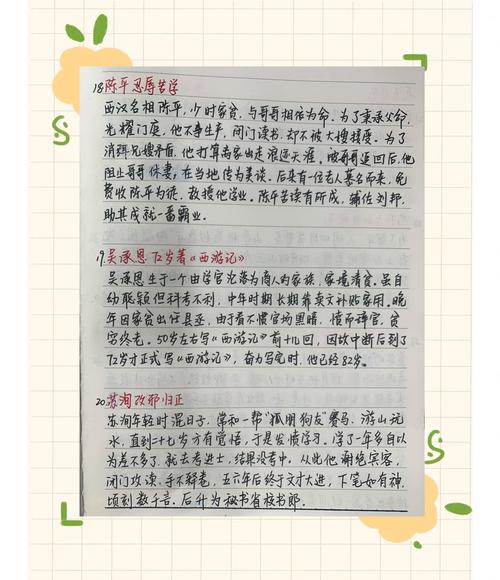 18陈平忍辱苦学
西汉名相陈平,少时家贫,与哥哥相依为命。为了秉承父命,
光耀门庭,他不事生产,闭门读书,却不被大嫂接受。为了
消弭兄嫂矛盾,他打算离家出走浪迹天涯。被哥哥追回后,他
阻止哥哥休妻,在当地传为美谈。后来有一位老人慕名而来,免
费收陈平为徒,教授他学业。陈平苦读有所成,辅佐刘邦,
助其成就一番霸业。
19.吴承恩72岁著《西游记》
吴承恩生于一个由学官沦落为商人的家族,家境清贫。虽自
幼聪颖但科考不利,中年时期长期靠卖文补贴家用。晚
年因家贫出任县丞,由于看不惯官场黑暗,愤而辞官,贫
穷终老。50岁左右写《西游记》前十几回,因故中断后到了
72岁才正式写《西游记》,奋力写完时,他已经82岁。
20苏洵改邪归正
苏洵年轻时混日子,常和一帮"狐朋狗友"赛马、游山玩
水,直到二十七岁方有觉悟,于是发愤学习。学了一年多自以
为差不多了,就去考进士,结果没考中。从此他谢绝宾客,
闭门攻读,手不释卷,五六年后终于文才大进,下笔如有神,
顷刻数千言。后升为秘书省校书郎.